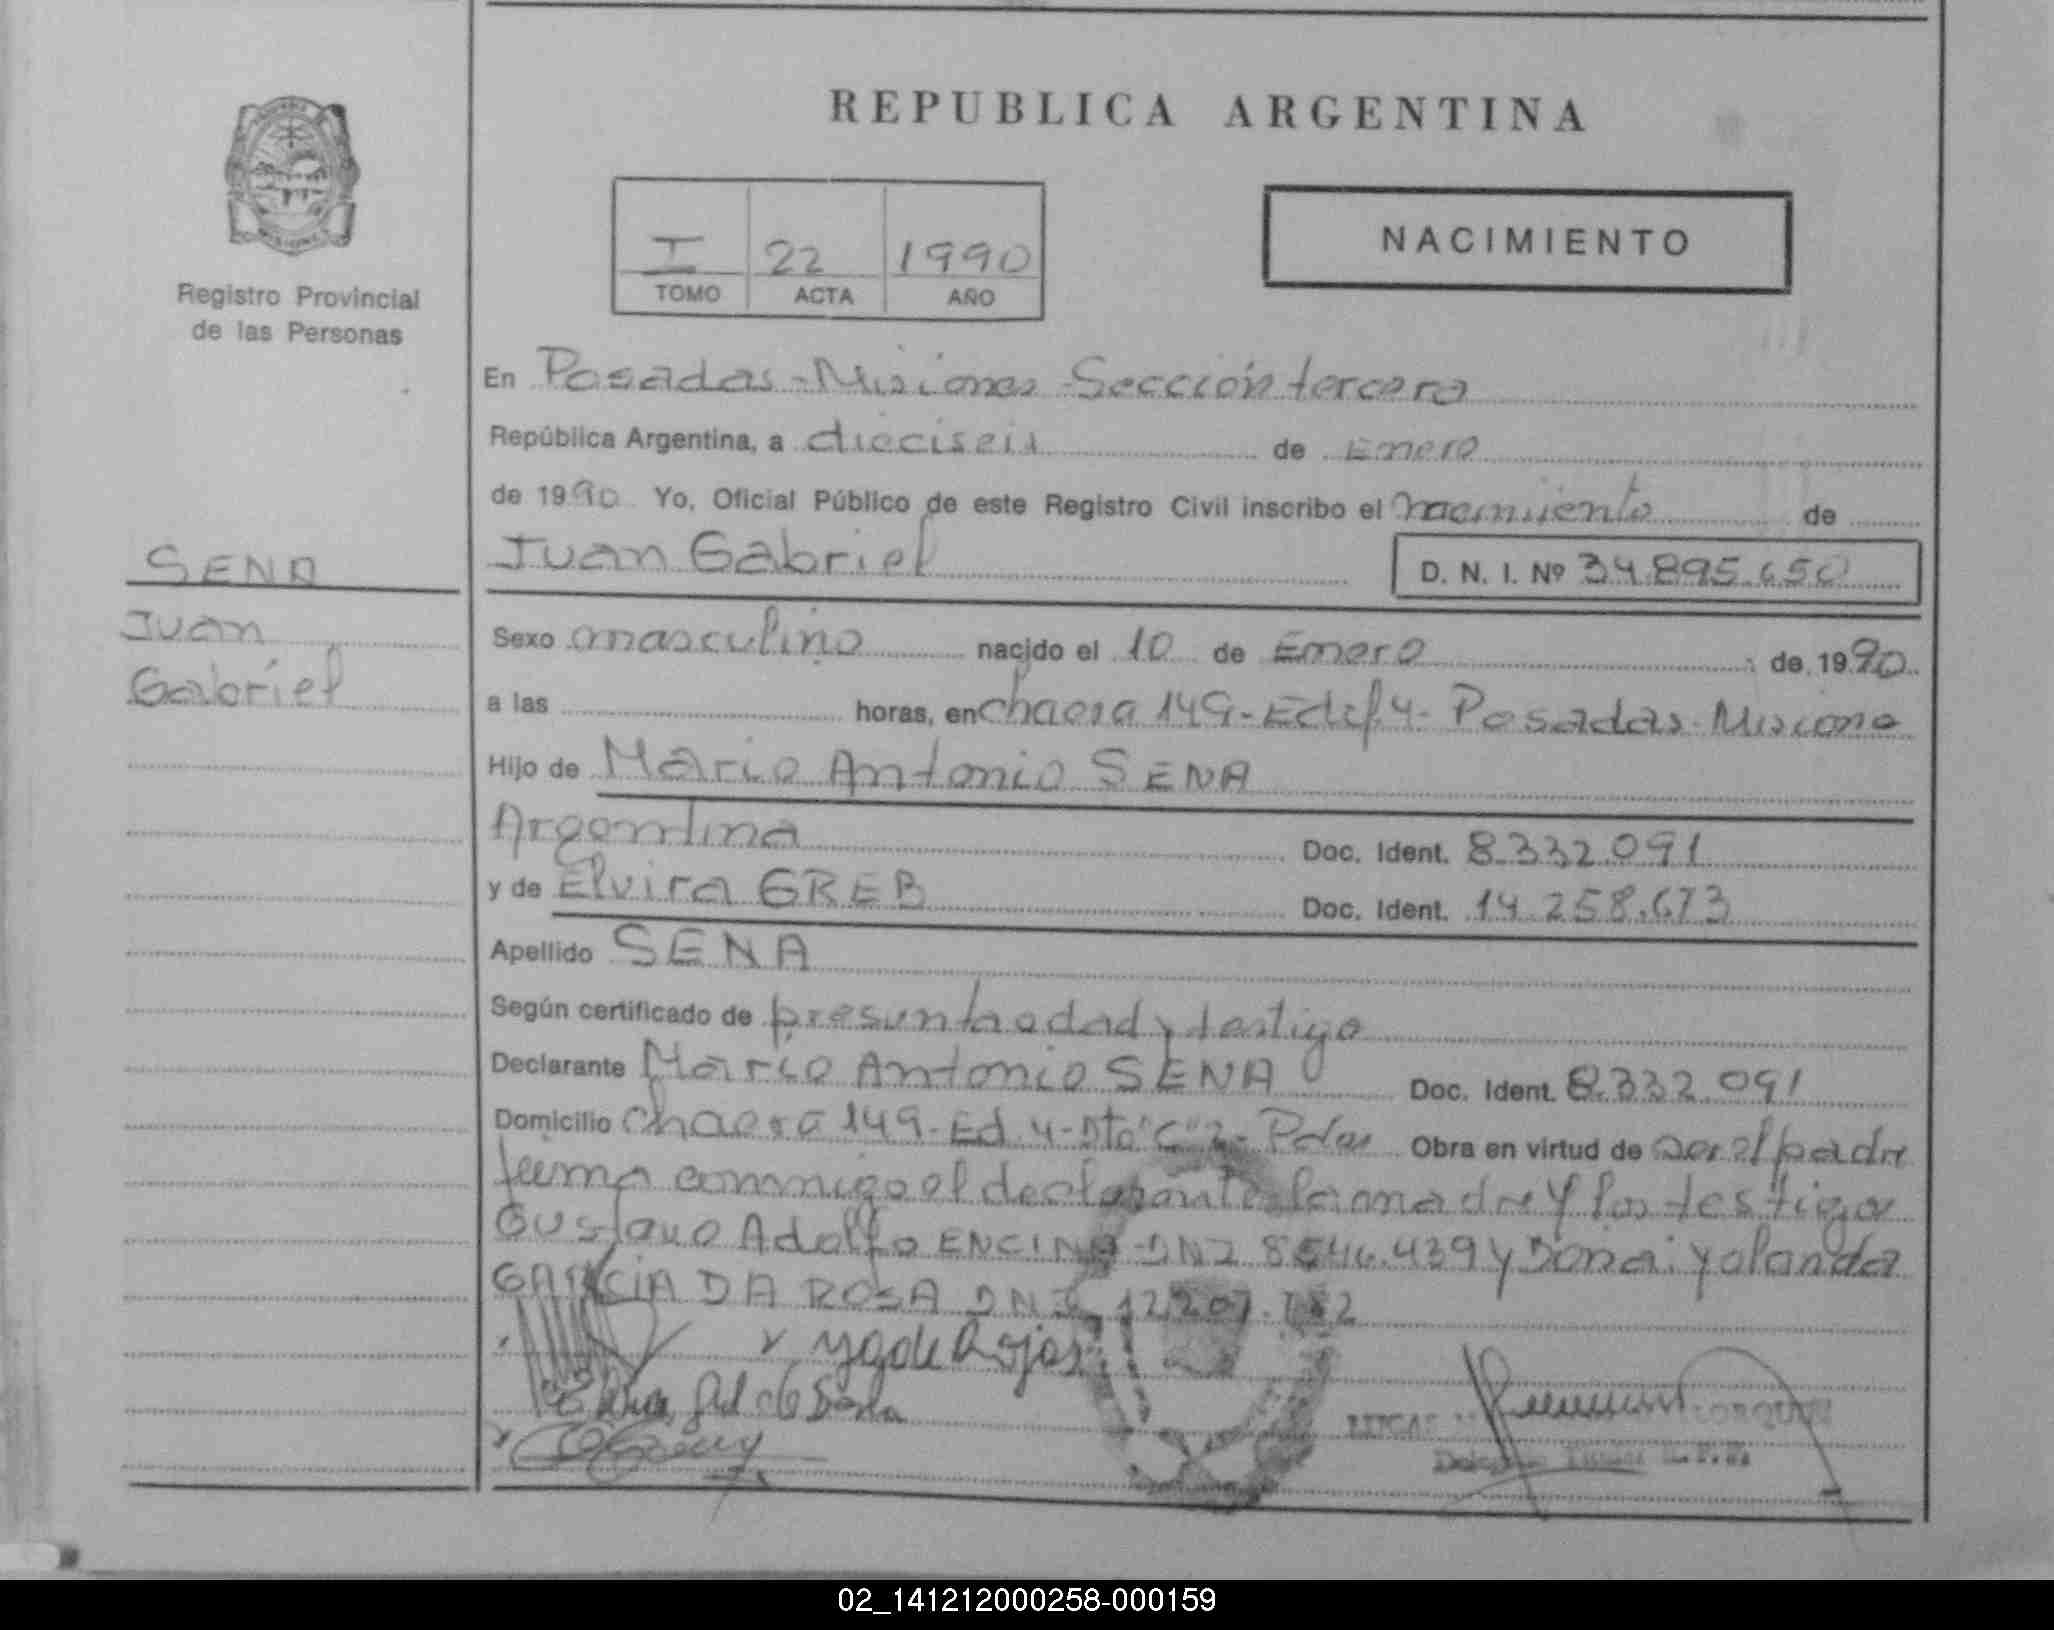 REPUBLICA ARGENTINA
Registro Provincial
de las Personas
I 22 1990
TOMO ACTA AÑO
NACIMIENTO
En Posadas - Misiones - Sección tercera
República Argentina, a dieciseis de Enero
de 1990 Yo, Oficial Público de este Registro Civil inscribo el nacimiento de
Juan Gabriel D. N. I. Nº 34.895.650
SENA
Juan
Gabriel
Sexo masculino nacido el 10 de Enero de 1990
a las horas, en chacra 149 - Edif. 4 - Posadas - Misiones
Hijo de Mario Antonio SENA
Argentina Doc. Ident. 8.332.091
y de Elvira GREB Doc. Ident. 14.258.673
Apellido SENA
Según certificado de presunta edad y testigo
Declarante Mario Antonio SENA Doc. Ident. 8.332.091
Domicilio chacra 149 - Ed. 4 - Dto "C" 2 - Pdas Obra en virtud de ser el padre
firma conmigo el declarante la madre y los testigos
Gustavo Adolfo ENCINA - DNI 8.546.439 y Doña Yolanda
GARCIA DA ROSA DNI 12.207.
y g de Rojas
02_141212000258-000159